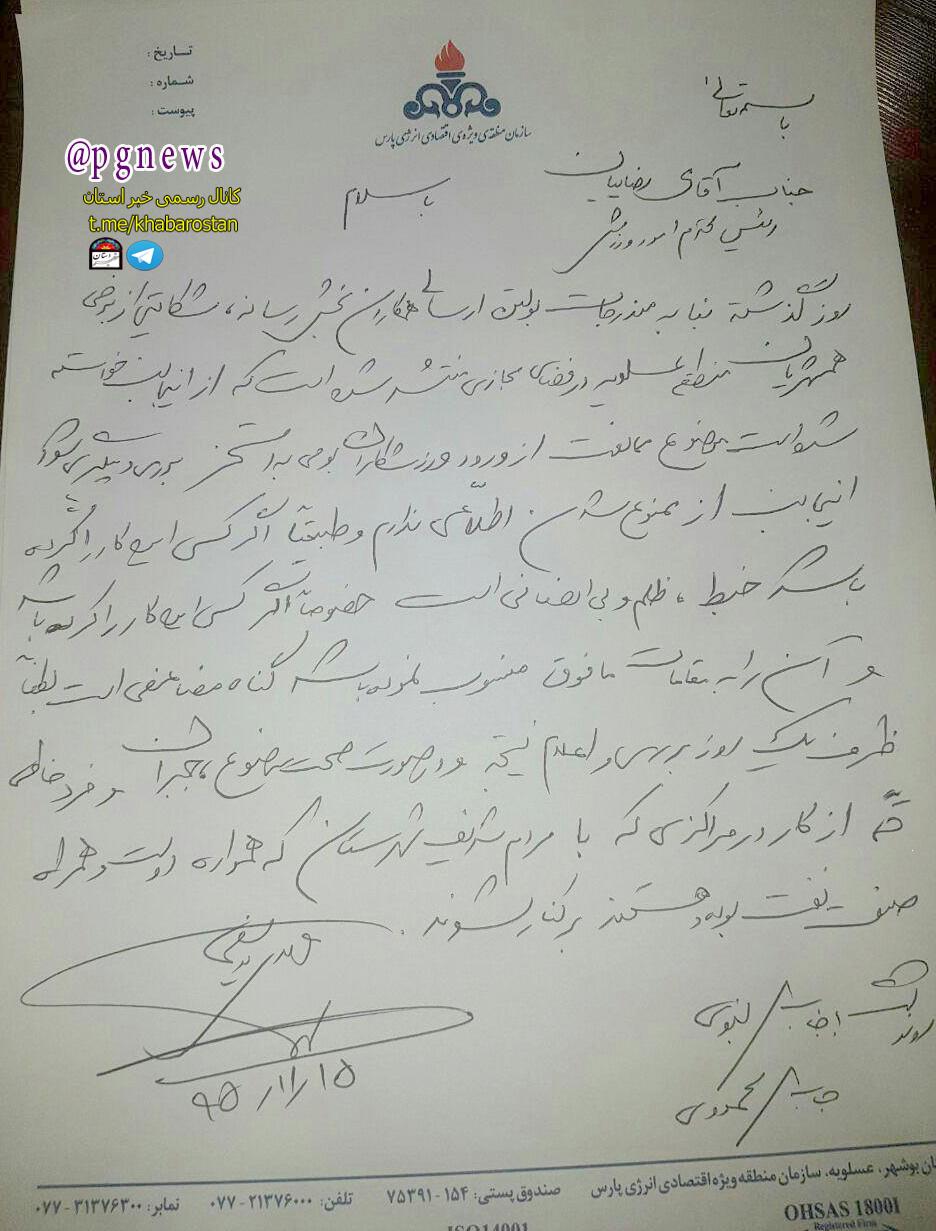 تاریخ :
شماره :
پیوست :
سازمان منطقه‌ی ویژه‌ی اقتصادی انرژی پارس
بسمه تعالی
@pgnews
کانال رسمی خبر استان
t.me/khabarostan
جناب آقای رضاییان
رئیس محترم امور ورزش
با سلام
روز گذشته بنا به مندرجات بولتن ارسالی همکاران بخش رسانه، شکایتی از برخی
همشهریان منطقه عسلویه در فضای مجازی منتشر شده است که از اینجانب خواسته
شده است موضوع ممانعت از ورود ورزشکاران بومی به استخر بررسی و پیگیری شود
اینجانب از ممنوع شدن اطلاعی ندارم و طبیعتاً اگر کسی این کار را کرده
باشد خبط، ظلم و بی انصافی است خصوصاً اگر کسی این کار را کرده باشد
و آن را به مقامات مافوق منسوب نموده باشد گناه مضاعفی است لطفاً
ظرف یک روز بررسی و اعلام نتیجه و در صورت صحت موضوع، جبران و فرد خاطی
از کار در مراکزی که با مردم شریف شهرستان که همواره دوست و همراه
صنعت نفت بوده و هستند برکنار شوند.
مهدی یوسفی
۹۵/۱۱/۱۵
رونوشت
جناب محمودی
بوشهر، عسلویه، سازمان منطقه ویژه اقتصادی انرژی پارس صندوق پستی: ۱۵۴-۷۵۳۹۱ تلفن: ۲۱۳۷۶۰۰۰-۰۷۷ نمابر: ۳۱۳۷۶۳۰۰-۰۷۷
OHSAS 18001
Registered Firm
ISO14001